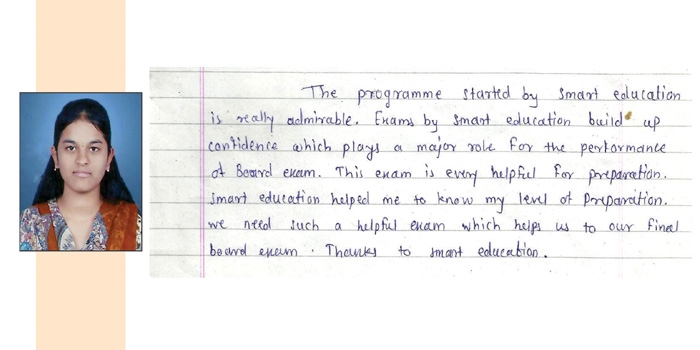 The programme started by smart education
is really admirable. Exams by smart education build up
confidence which plays a major role for the performance
of Board exam. This exam is every helpful for preparation.
smart education helped me to know my level of preparation.
we need such a helpful exam which helps us to our final
board exam. Thanks to smart education.